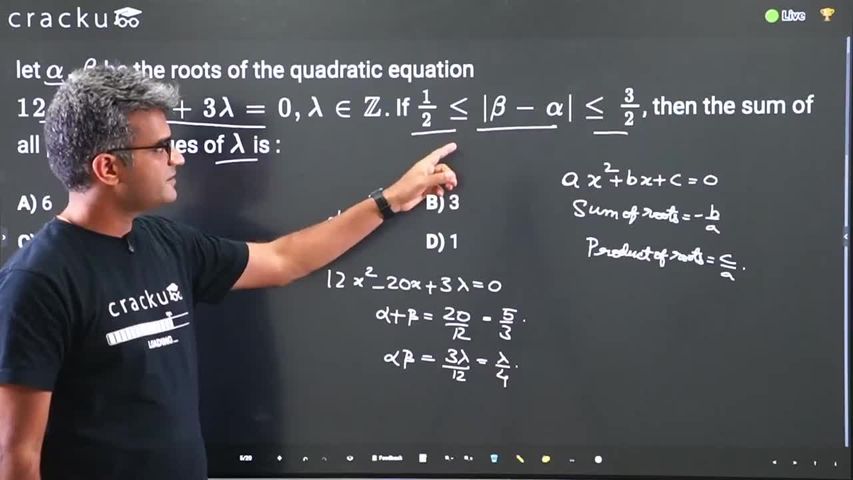 cracku
Live
let α, β be the roots of the quadratic equation
12 + 3λ = 0, λ ∈ ℤ. If 1/2 ≤ |β − α| ≤ 3/2, then the sum of
all of λ is :
A) 6
B) 3
D) 1
ax²+bx+c=0
Sum of roots = -b/a
Product of roots = c/a.
12x²-20x+3λ=0
α+β = 20/12 = 5/3.
αβ = 3λ/12 = λ/4.
cracku
LOADING..
5/20
Feedback